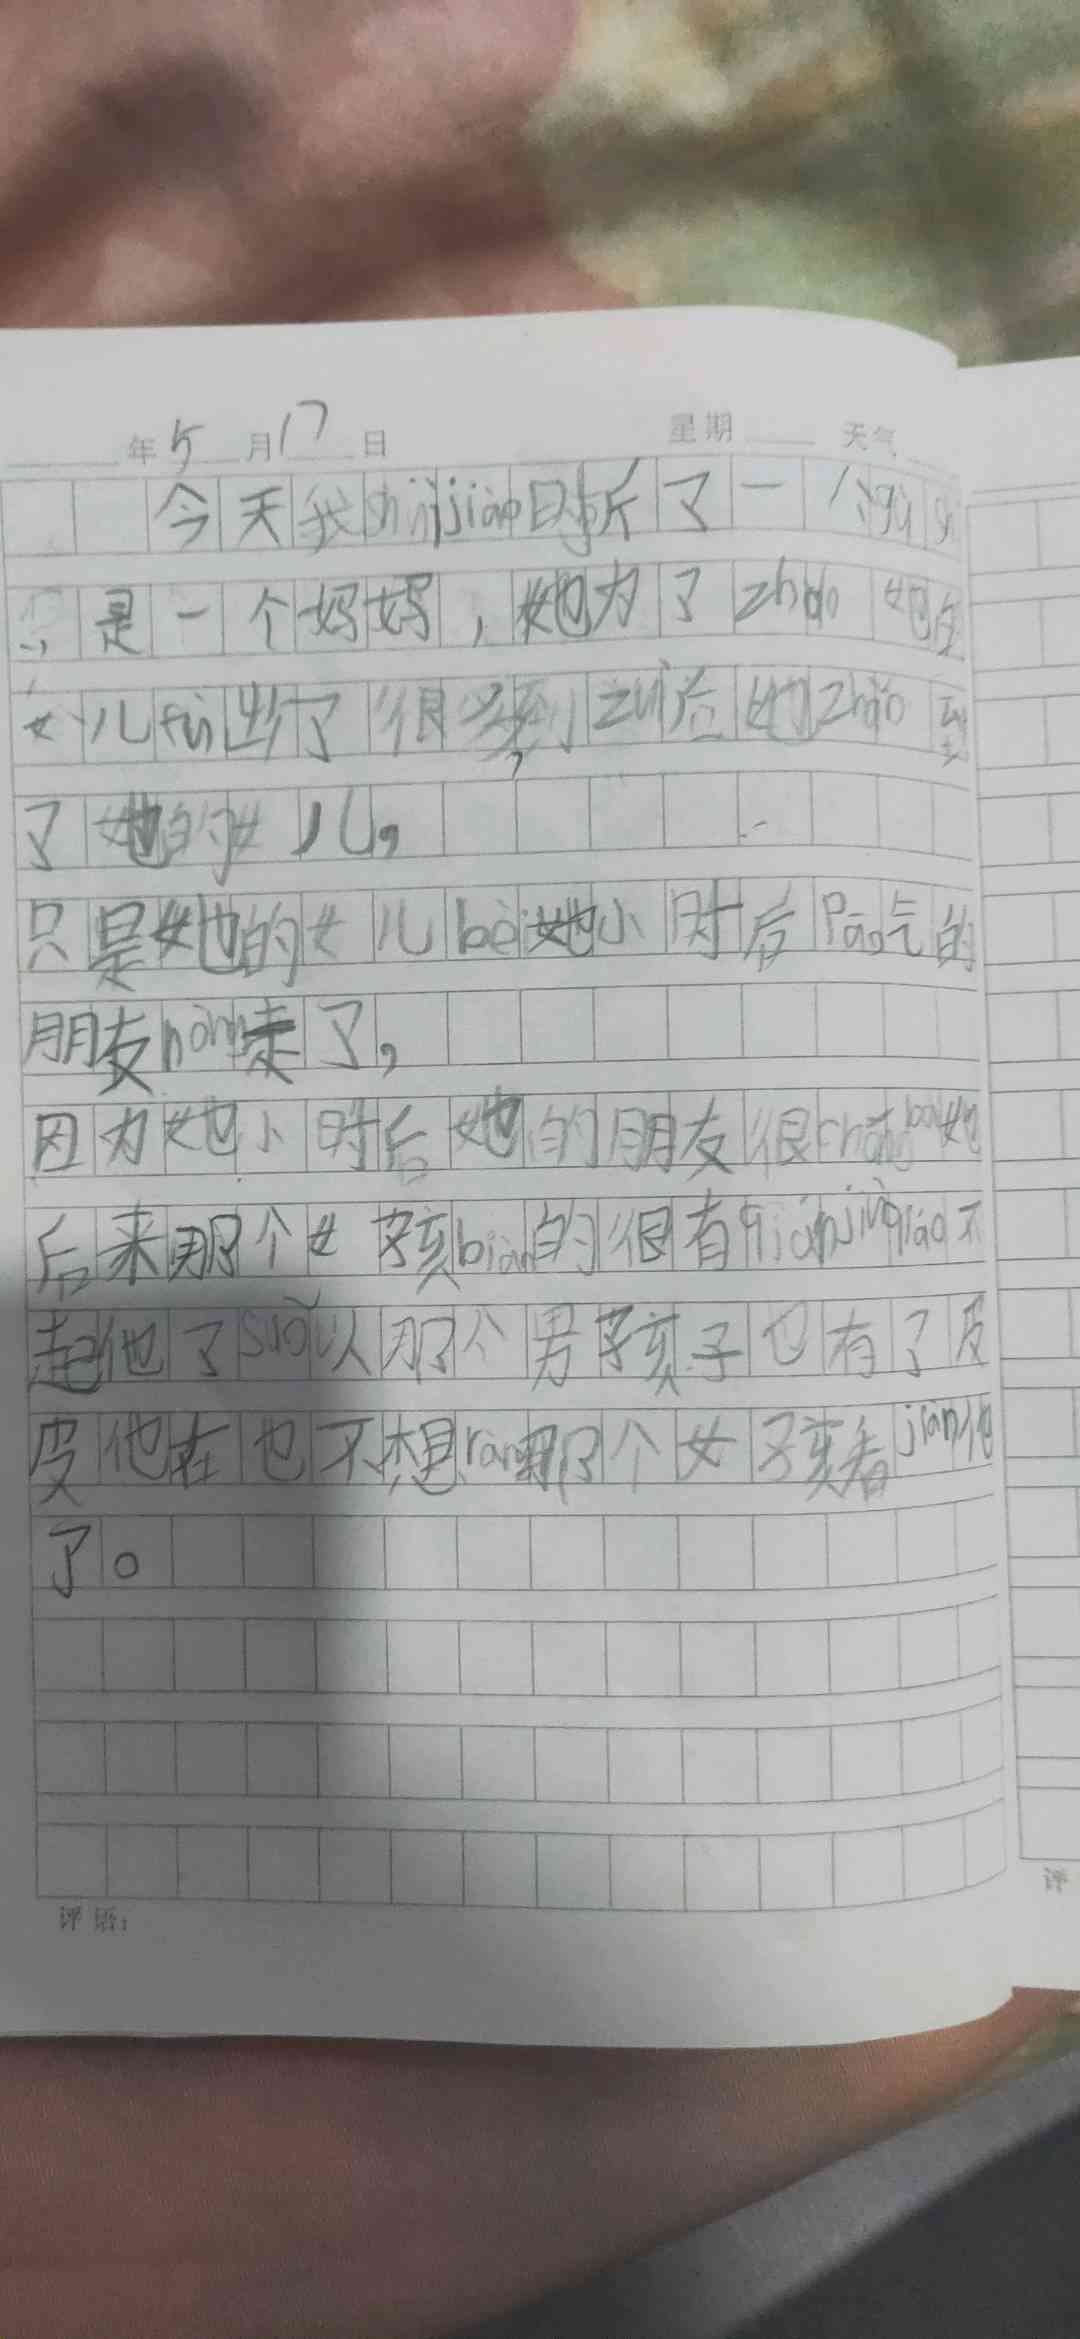 年5月17日 星期 天气
今天我shuìjiào时听了一个gù
是一个妈妈，她为了zhǎo她的
女儿fù出了很多到zuì后她zhǎo到
了她的女儿，
只是她的女儿bèi她小时后Pāo气的
朋友hòng走了，
因为她小时后她的朋友很chóngbài她
后来那个女孩biàn的很有qiánjiùqiáo不
起他了suǒ以那个男孩子也有了反
皮他在也不想ràng那个女孩看jiàn他
了。
评语：
评